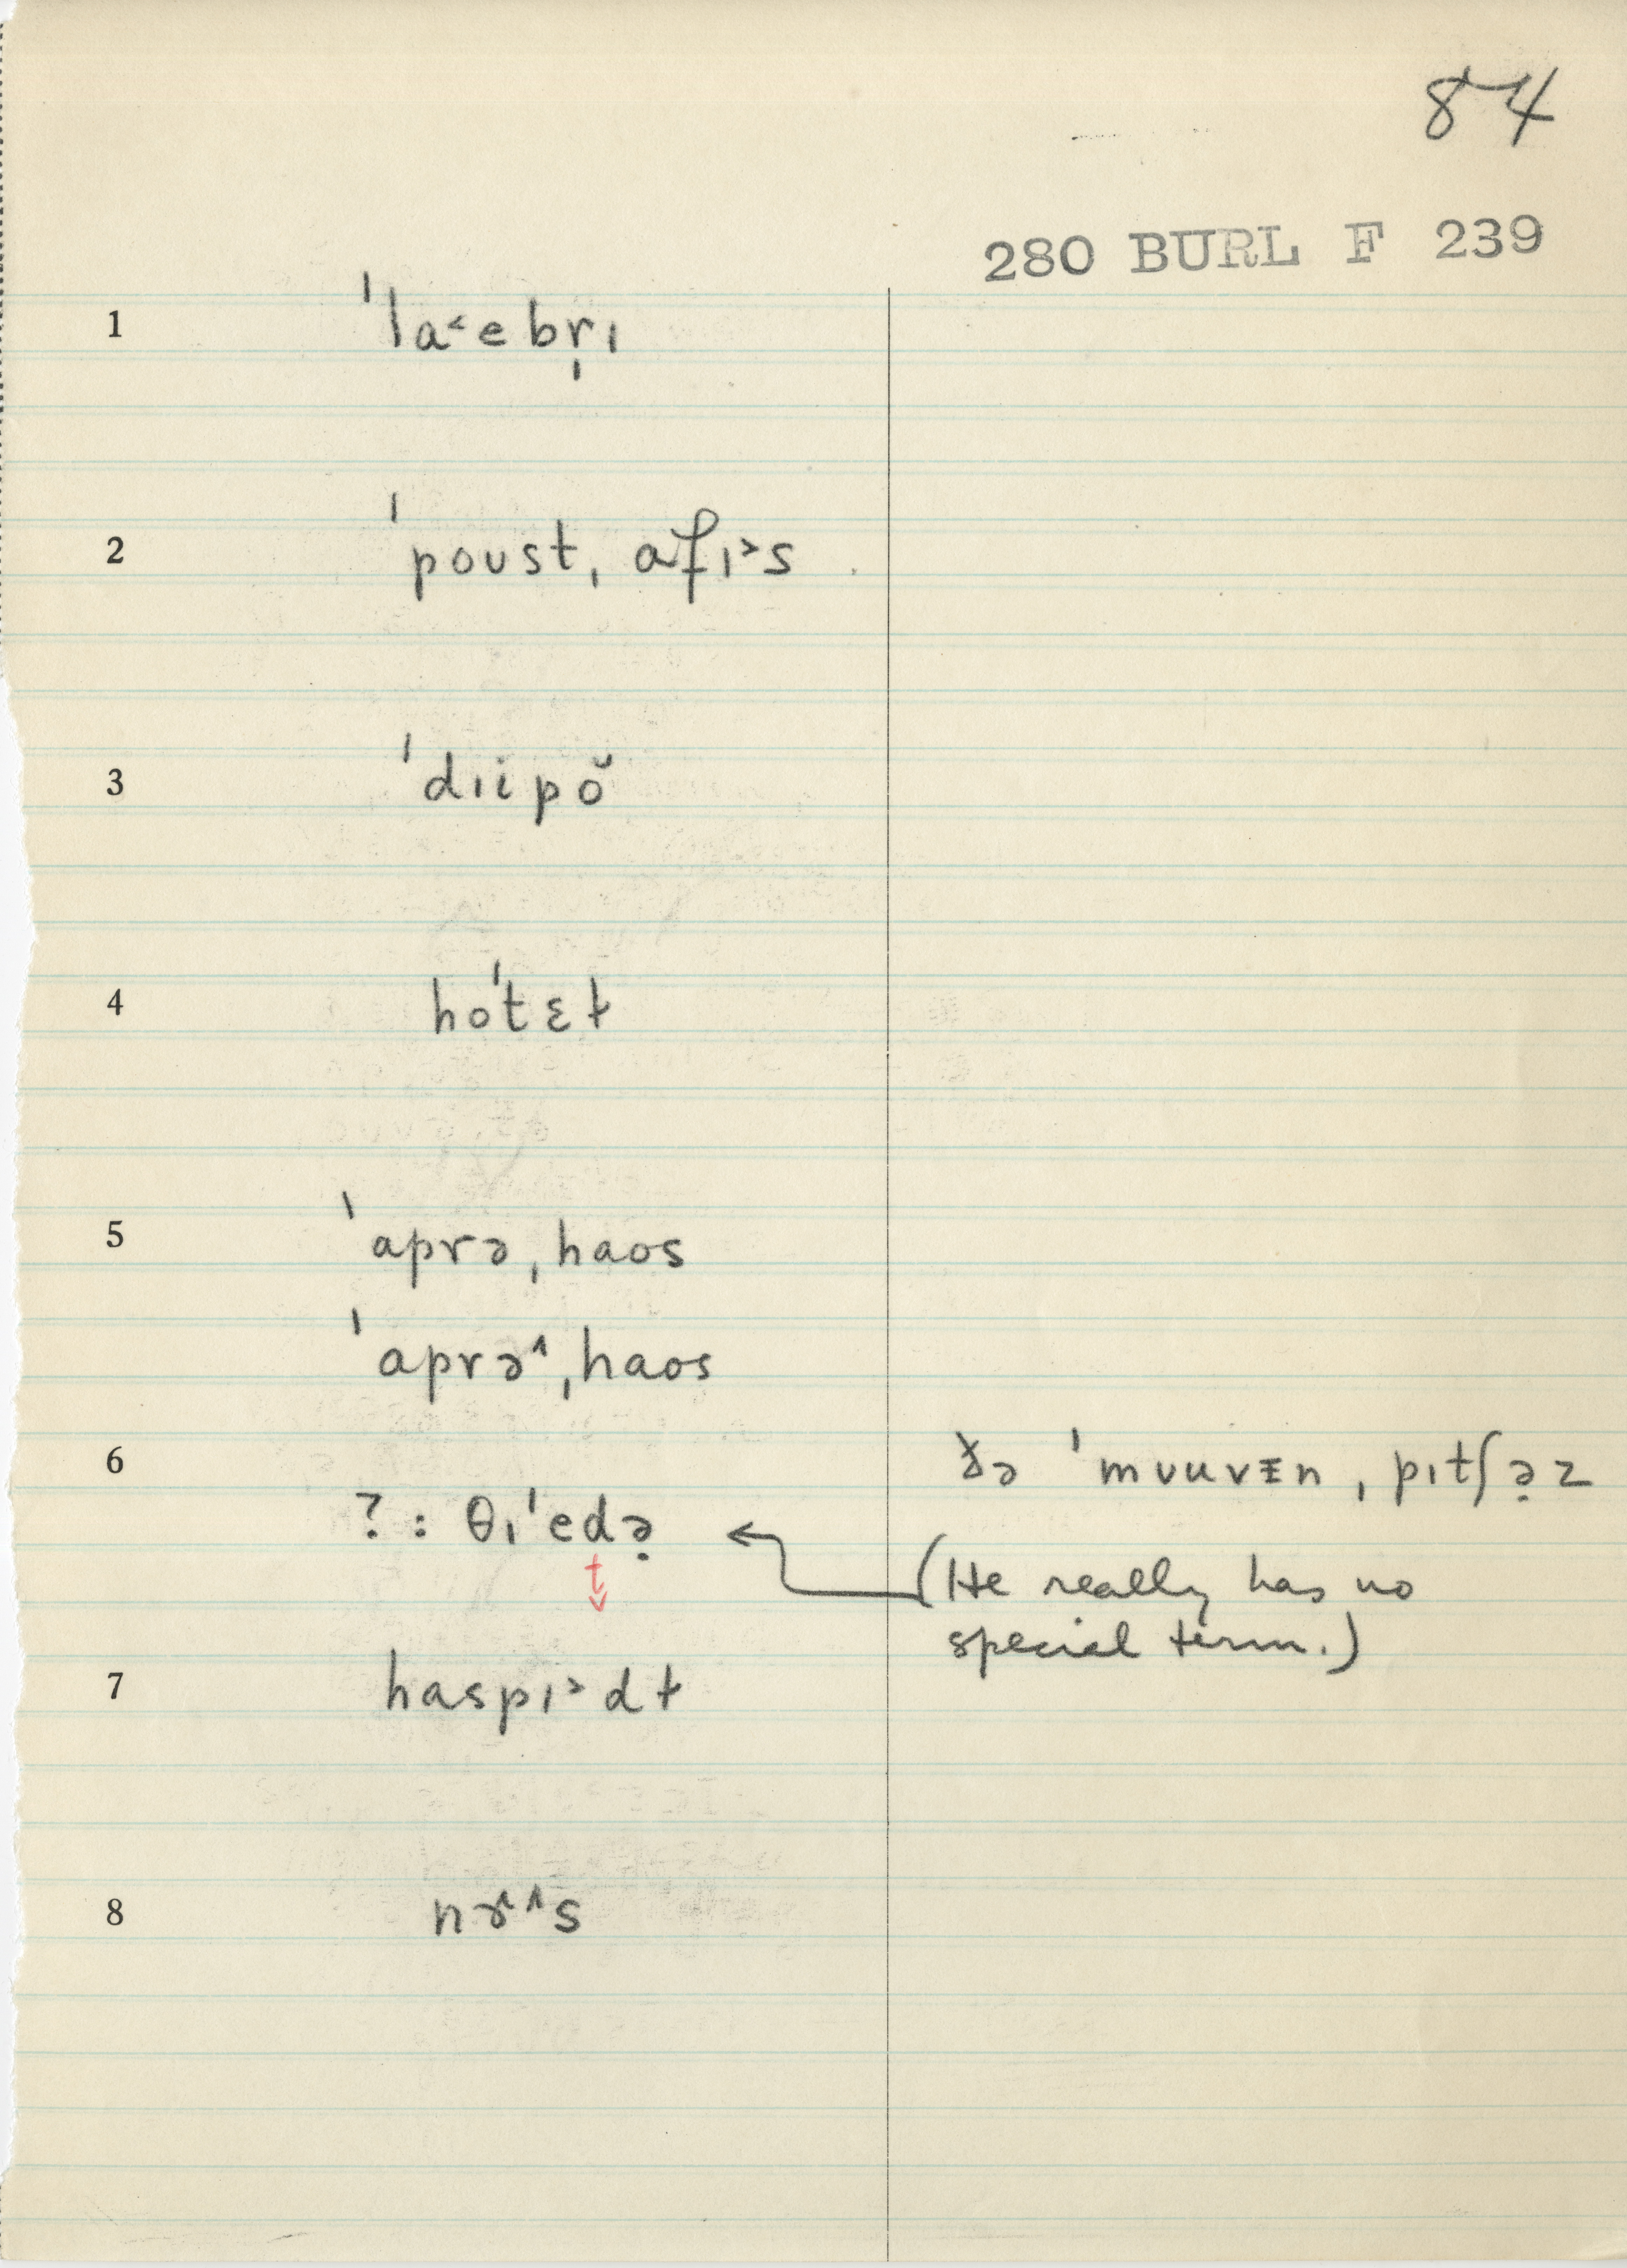 84
280 BURL F 239
1 ˈla˂ebr̩ɪ
2 ˈpoust, ˌafɪ˃s
3 ˈdɪipŏ
4 hoˈtɛɫ
5 ˈaprə ˌhaos
ˈaprə˄ ˌhaos
6 ðə ˈmʊuvɪn ˌpɪtʃə̣z
? : θɪˈedə̣
t
(He really has no
special term.)
7 haspɪ˃dɫ
8 nɝ˄s